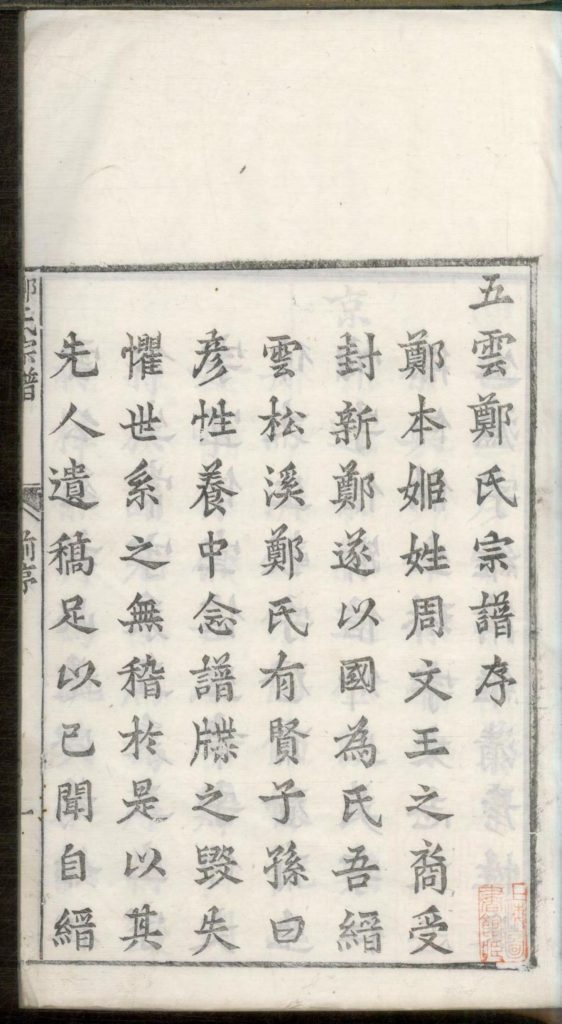 五雲鄭氏宗譜序
鄭本姬姓周文王之裔受
封新鄭遂以國為氏吾縉
雲松溪鄭氏有賢子孫曰
彦性養中念譜牒之毀失
懼世系之無稽於是以其
先人遺稿足以已聞自縉
鄭氏宗譜
前序
一